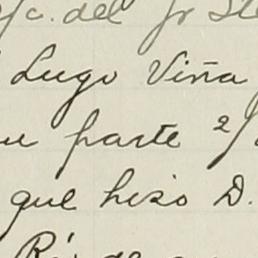 /c. del Jr
Lugo Viña
parte 2/
que hiso D.